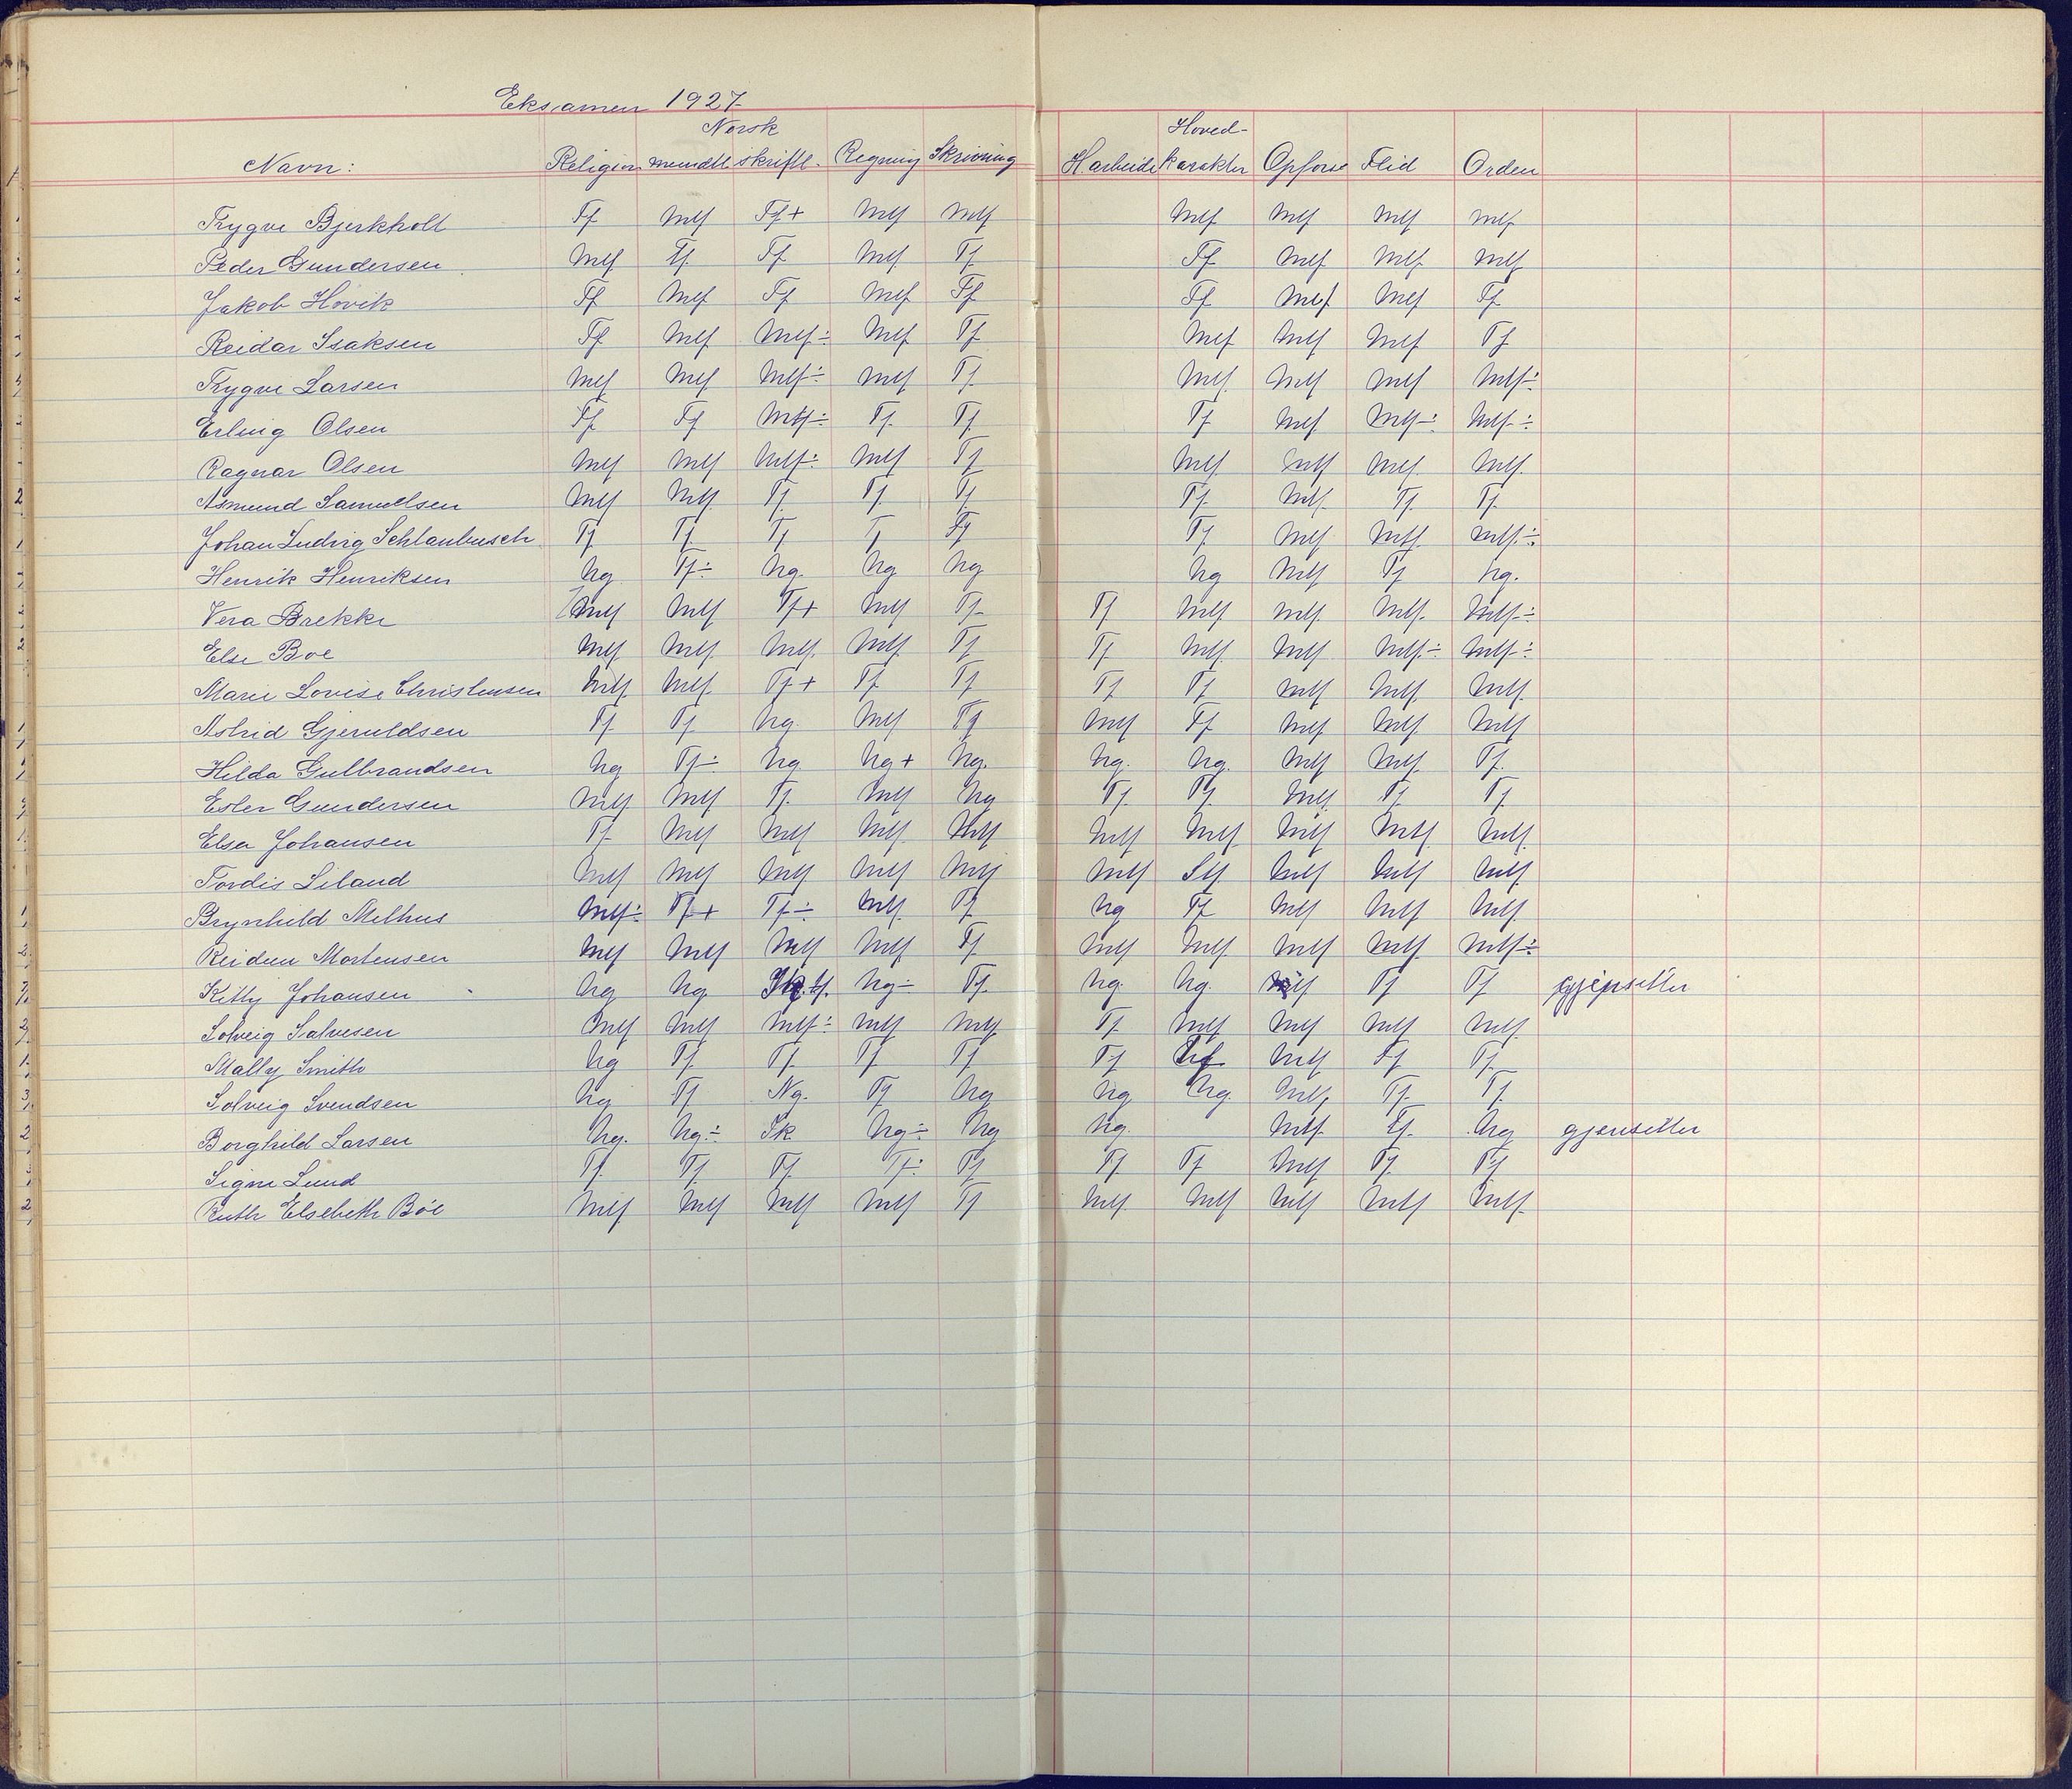 Eksamen 1927
Norsk Hoved-
Navn: Religion mundtl skriftl. Regning Skrivning H.arbeide karakter Opførse Flid Orden
Trygve Bjerkholt Tf Mtf Tf+ Mtf Mtf Mtf Mtf Mtf Mtf
Peder Gundersen Mtf Tf. Tf Mtf Tf Tf Mtf Mtf Mtf
Jakob Hovik Tf Mtf Tf Mtf Tf Tf Mtf Mtf Tf
Reidar Isaksen Tf Mtf Mtf÷ Mtf Tf Mtf Mtf Mtf Tf
Trygve Larsen Mtf Mtf Mtf÷ Mtf Tf Mtf Mtf Mtf Mtf÷
Erling Olsen Tf Tf Mtf÷ Tf. Tf Tf Mtf Mtf÷ Mtf÷
Ragnar Olsen Mtf Mtf Mtf÷ Mtf Tf Mtf Mtf Mtf Mtf
Asmund Samuelsen Mtf Mtf Tf Tf Tf Tf Mtf Tf Tf
Johan Ludvig Schlanbusch Tf Tf Tf T Tf Tf Mtf Mtf Mtf÷
Henrik Henriksen Ng Tf÷ Ng. Ng Ng Ng Mtf Tf Ng.
Vera Brekke Mtf Mtf Tf+ Mtf Tf Tf Mtf Mtf Mtf Mtf÷
Else Boe Mtf Mtf Mtf. Mtf Tf Tf Mtf Mtf Mtf÷ Mtf÷
Marie Lovise Christensen Mtf Mtf Tf+ Tf Tf Tf Tf Mtf Mtf Mtf
Astrid Gjeruldsen Tf Tf Ng. Mtf Tf Mtf Tf Mtf Mtf Mtf
Hilda Gulbrandsen Ng Tf÷ Ng Ng+ Ng. Ng. Ng. Mtf Mtf Tf
Ester Gundersen Mtf Mtf Tf. Mtf Ng Tf. Tf. Mtf Tf Tf
Elsa Johansen Tf Mtf Mtf Mtf Mtf Mtf Mtf Mtf Mtf Mtf
Tordis Liland Mtf Mtf Mtf Mtf Mtf Mtf Mtf Mtf Mtf
Brynhild Melhus Mtf÷ Tf+ Tf÷ Mtf Tf Ng Tf Mtf Mtf Mtf
Reidun Mortensen Mtf Mtf Mtf Mtf Tf Mtf Mtf Mtf Mtf Mtf÷
Kitty Johansen Ng Ng Ng÷ Tf Ng. Ng. Mtf Tf Tf gjensitter
Solveig Salvesen Mtf Mtf Mtf÷ Mtf Mtf Tf Mtf Mtf Mtf Mtf
Mally Smith Ng Tf Tf Tf Tf Tf Mtf Tf Tf
Solveig Svendsen Ng Tf Ng. Tf Ng Ng Ng. Mtf Tf Tf
Borghild Larsen Ng. Ng÷ Sk Ng÷ Ng Ng. Mtf Tf. Ng gjensitter
Signe Lund Tf Tf Tf Tf÷ Tf Tf Tf Mtf Tf Tf
Ruth Elsebeth Böe Mtf Mtf Mtf Mtf Tf Mtf Mtf Mtf Mtf Mtf